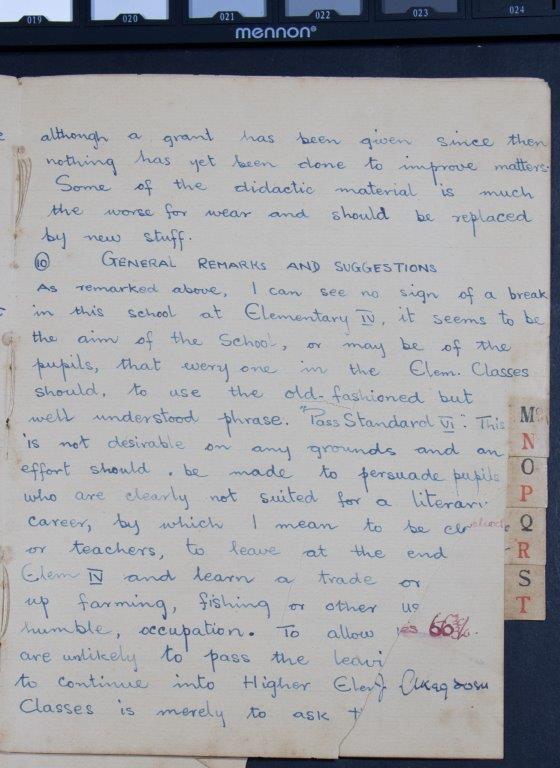 019 020 021 022 023 024
mennon®
although a grant has been given since then
nothing has yet been done to improve matters.
Some of the didactic material is much
the worse for wear and should be replaced
by new stuff.
⑩ GENERAL REMARKS AND SUGGESTIONS
As remarked above, I can see no sign of a break
in this school at Elementary IV, it seems to be
the aim of the School, or may be of the
pupils, that every one in the Elem. Classes
should, to use the old-fashioned but
well understood phrase. "Pass Standard VI". This
is not desirable on any grounds and an
effort should be made to persuade pupils
who are clearly not suited for a literary
career, by which I mean to be
or teachers, to leave at the end
Elem IV and learn a trade or
up farming, fishing or other us
humble, occupation. To allow 66
are unlikely to pass the leavi
to continue into Higher Elem
Classes is merely to ask
M
N
O
P
Q
R
S
T